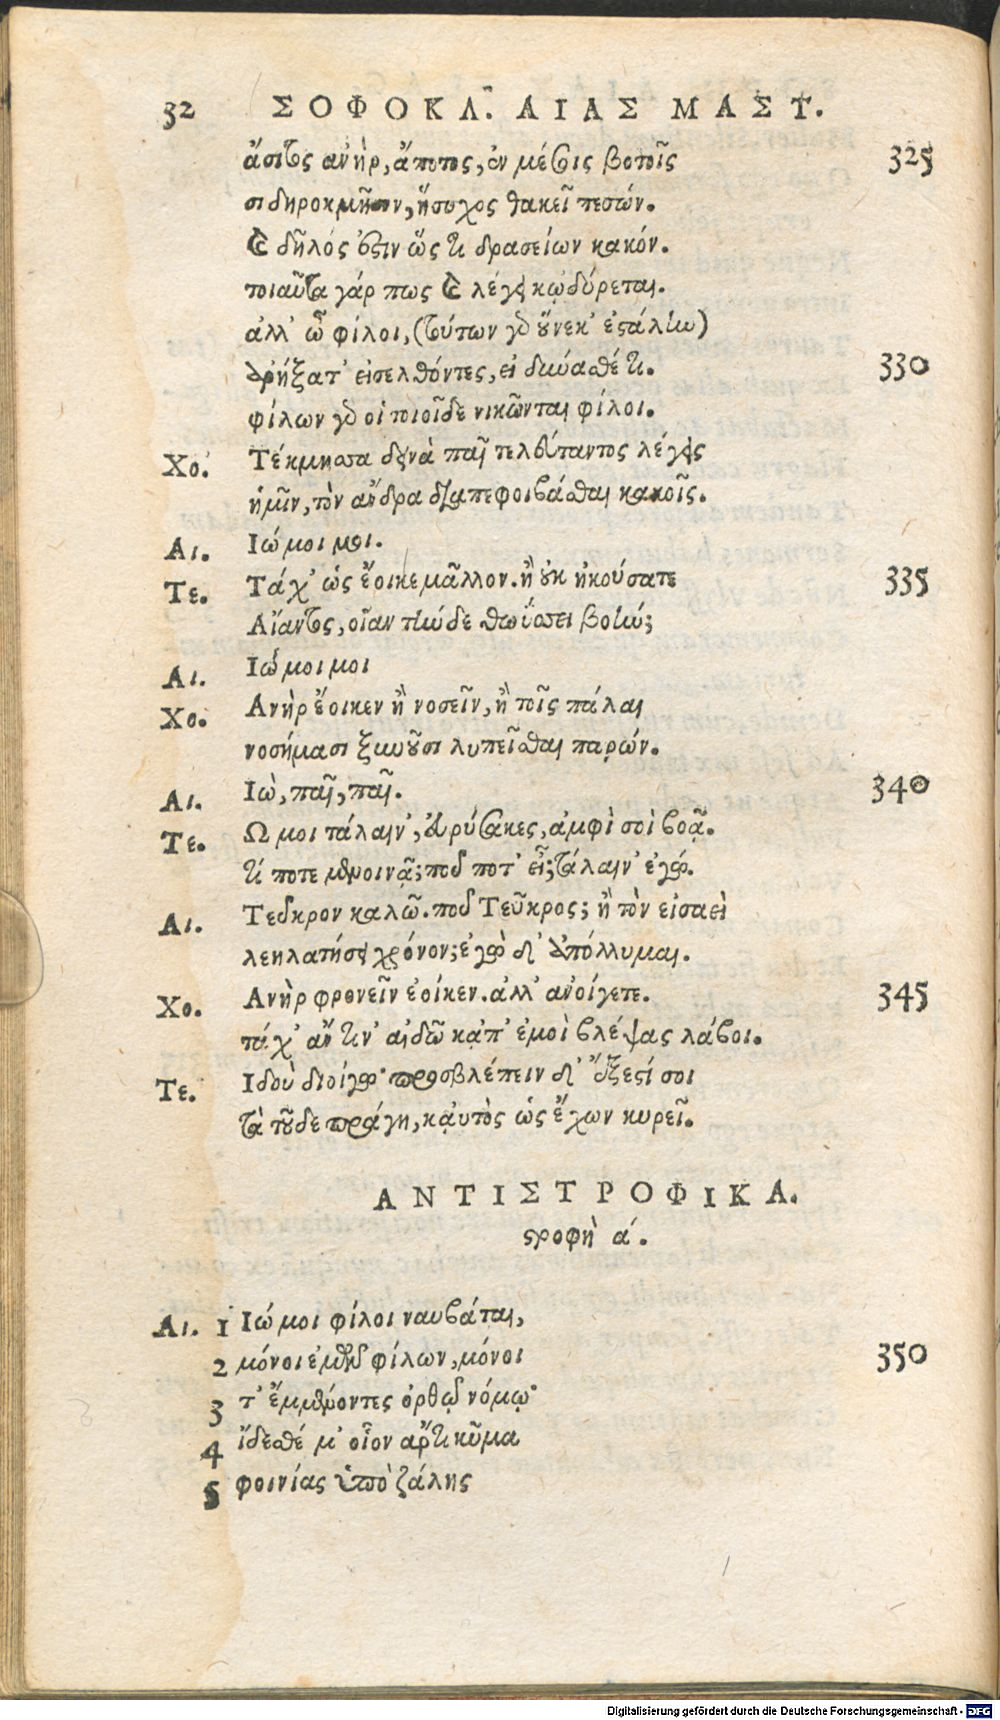 32 ΣΟΦΟΚΛ. ΑΙΑΣ ΜΑΣΤ.
ἄσιτος ἀνὴρ, ἄποτος, ἐν μέσοις βοτοῖς 325
σιδηροκμῆσιν, ἥσυχος θακεῖ πεσών.
καὶ δῆλός ἐστιν ὥς τι δρασείων κακόν.
τοιαῦτα γάρ πως καὶ λέγει κᾠδύρεται.
ἀλλ' ὦ φίλοι, (τούτων γὰρ οὕνεκ' ἐστάλην)
ἀρήξατ' εἰσελθόντες, εἰ δύνασθέ τι. 330
φίλων γὰρ οἱ τοιοίδε νικῶνται φίλοι.
Χο. Τέκμησσα δεινὰ παῖ τελεύταντος λέγεις
ἡμῖν, τὸν ἄνδρα διαπεφοιβάσθαι κακοῖς.
Αι. Ιώ μοι μοι.
Τε. Τάχ' ὡς ἔοικε μᾶλλον. ἢ οὐκ ἠκούσατε 335
Αἴαντος, οἵαν τήνδε θωΰσσει βοήν;
Αι. Ιώ μοι μοι
Χο. Ανὴρ ἔοικεν ἢ νοσεῖν, ἢ τοῖς πάλαι
νοσήμασι ξυνοῦσι λυπεῖσθαι παρών.
Αι. Ιὼ, παῖ, παῖ. 340
Τε. Ω μοι τάλαιν', Εὐρύσακες, ἀμφὶ σοὶ βοᾷ.
τί ποτε μενοινᾷ; ποῦ ποτ' εἶ; τάλαιν' ἐγώ.
Αι. Τεῦκρον καλῶ. ποῦ Τεῦκρος; ἢ τὸν εἰσαεὶ
λεηλατήσει χρόνον; ἐγὼ δ' ἀπόλλυμαι.
Χο. Ανὴρ φρονεῖν ἔοικεν. ἀλλ' ἀνοίγετε. 345
τάχ' ἄν τιν' αἰδῶ κᾀπ' ἐμοὶ βλέψας λάβοι.
Τε. Ιδοὺ διοίγω· προσβλέπειν δ' ἔξεστί σοι
τὰ τοῦδε πράγη, καὐτὸς ὡς ἔχων κυρεῖ.
ΑΝΤΙΣΤΡΟΦΙΚΑ.
στροφὴ ά.
Αι. 1 Ιώ μοι φίλοι ναυβάται,
2 μόνοι ἐμῶν φίλων, μόνοι 350
3 τ' ἔμμένοντες ὀρθῷ νόμῳ·
4 ἴδεσθέ μ' οἷον ἄρτι κῦμα
5 φοινίας ὑπὸ ζάλης
Digitalisierung gefördert durch die Deutsche Forschungsgemeinschaft - DFG